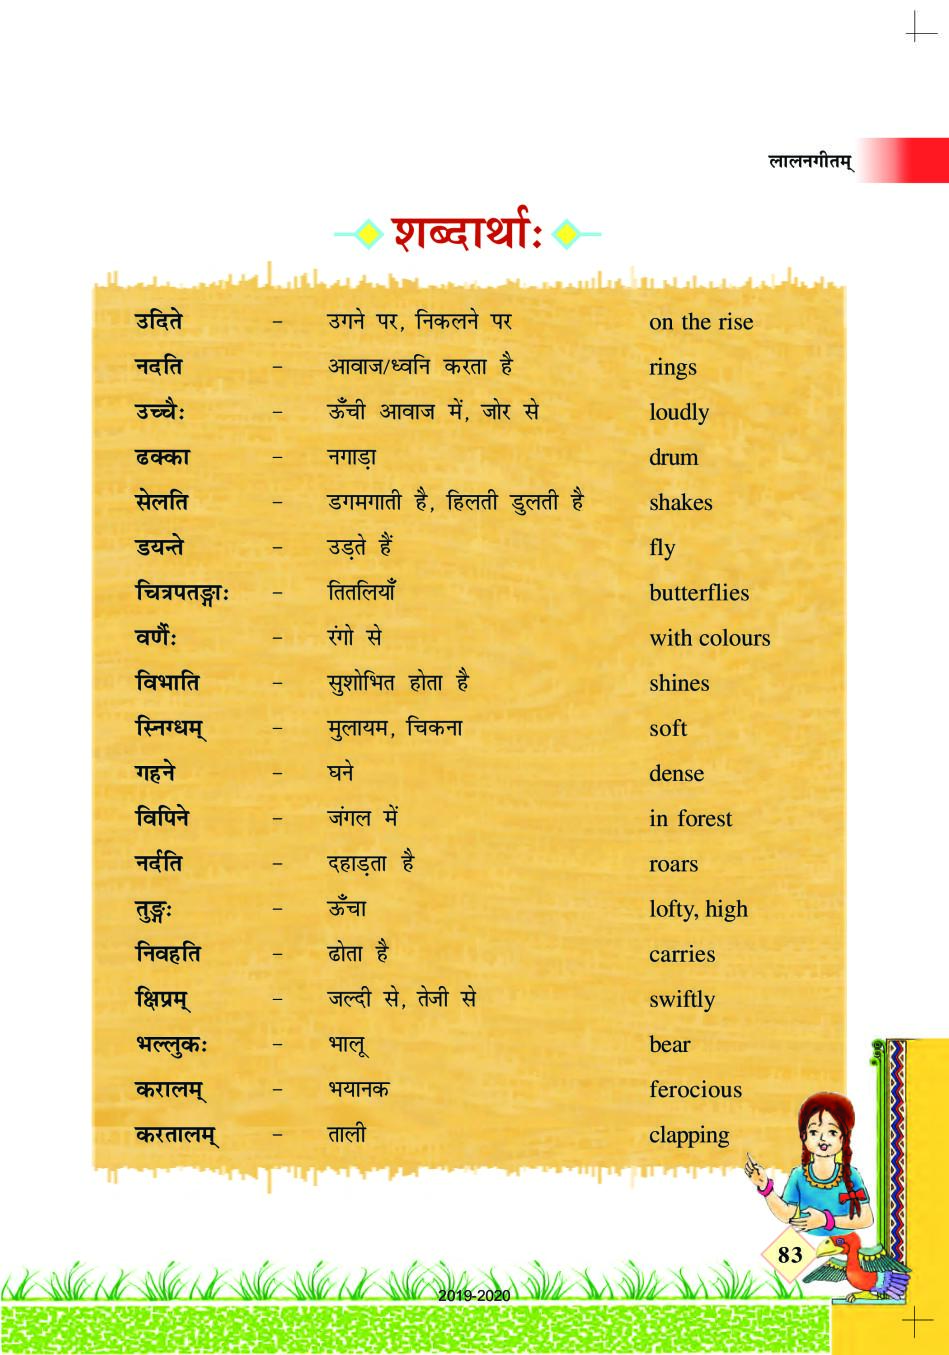 लालनगीतम्
शब्दार्थाः
उदिते – उगने पर, निकलने पर on the rise
नदति – आवाज/ध्वनि करता है rings
उच्चैः – ऊँची आवाज में, जोर से loudly
ढक्का – नगाड़ा drum
सेलति – डगमगाती है, हिलती डुलती है shakes
डयन्ते – उड़ते हैं fly
चित्रपतङ्गाः – तितलियाँ butterflies
वर्णैः – रंगो से with colours
विभाति – सुशोभित होता है shines
स्निग्धम् – मुलायम, चिकना soft
गहने – घने dense
विपिने – जंगल में in forest
नर्दति – दहाड़ता है roars
तुङ्गः – ऊँचा lofty, high
निवहति – ढोता है carries
क्षिप्रम् – जल्दी से, तेजी से swiftly
भल्लुकः – भालू bear
करालम् – भयानक ferocious
करतालम् – ताली clapping
83
2019-2020